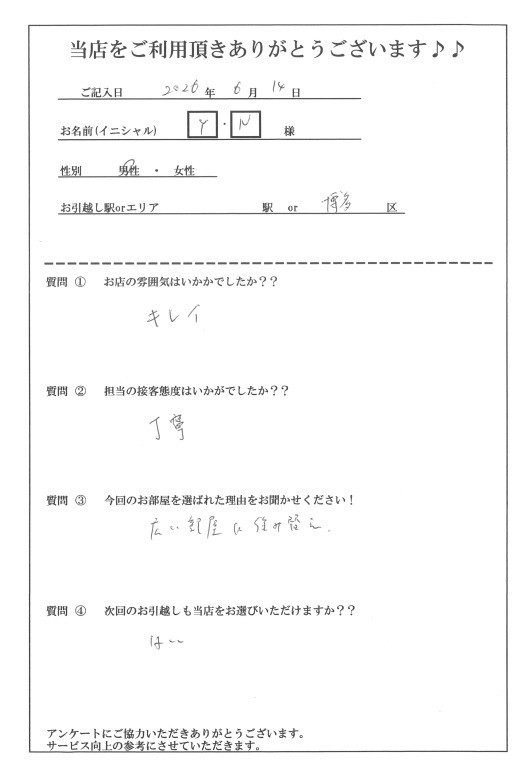 当店をご利用頂きありがとうございます♪♪
ご記入日 2026 年 6 月 14 日
お名前(イニシャル) Y ・ N 様
性別 男性 ・ 女性
お引越し駅orエリア 駅 or 博多 区
質問 ① お店の雰囲気はいかかでしたか??
キレイ
質問 ② 担当の接客態度はいかがでしたか??
丁寧
質問 ③ 今回のお部屋を選ばれた理由をお聞かせください!
広い部屋に住み替え.
質問 ④ 次回のお引越しも当店をお選びいただけますか??
はい
アンケートにご協力いただきありがとうございます。
サービス向上の参考にさせていただきます。